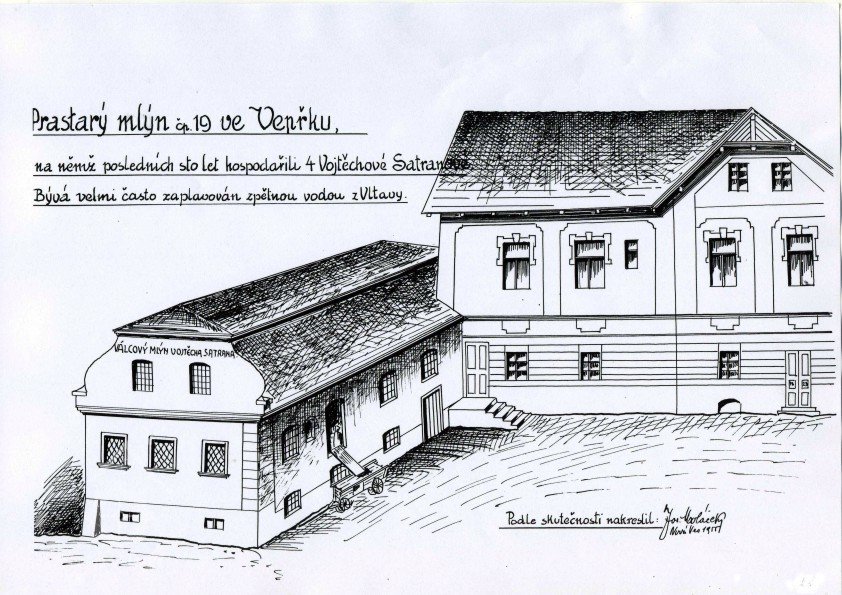 Prastarý mlýn čp. 19 ve Vepřku,
na němž posledních sto let hospodařili 4 Vojtěchové Satranové.
Bývá velmi často zaplavován zpětnou vodou z Vltavy.
VÁLCOVÝ MLÝN VOJTĚCHA SATRANA
Podle skutečnosti nakreslil:
Nová Ves